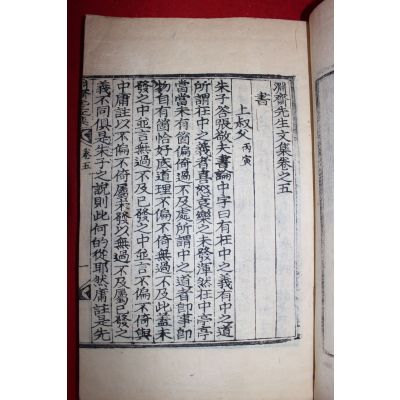 淵齋先生文集卷之五
書
上叔父 丙寅
朱子答張敬夫書論中字曰有在中之義有中之道
所謂在中之義者喜怒哀樂之未發渾然在中亭亭
當當未有箇偏倚過不及處所謂中之道者卽事卽
物自有箇恰好底道理不偏不倚無過不及此蓋未
發之中並言無過不及已發之中並言不偏不倚與
中庸註以不偏不倚屬未發以無過不及屬已發之
義不同俱是朱子之說則此何的從耶然庸註是先
卷五